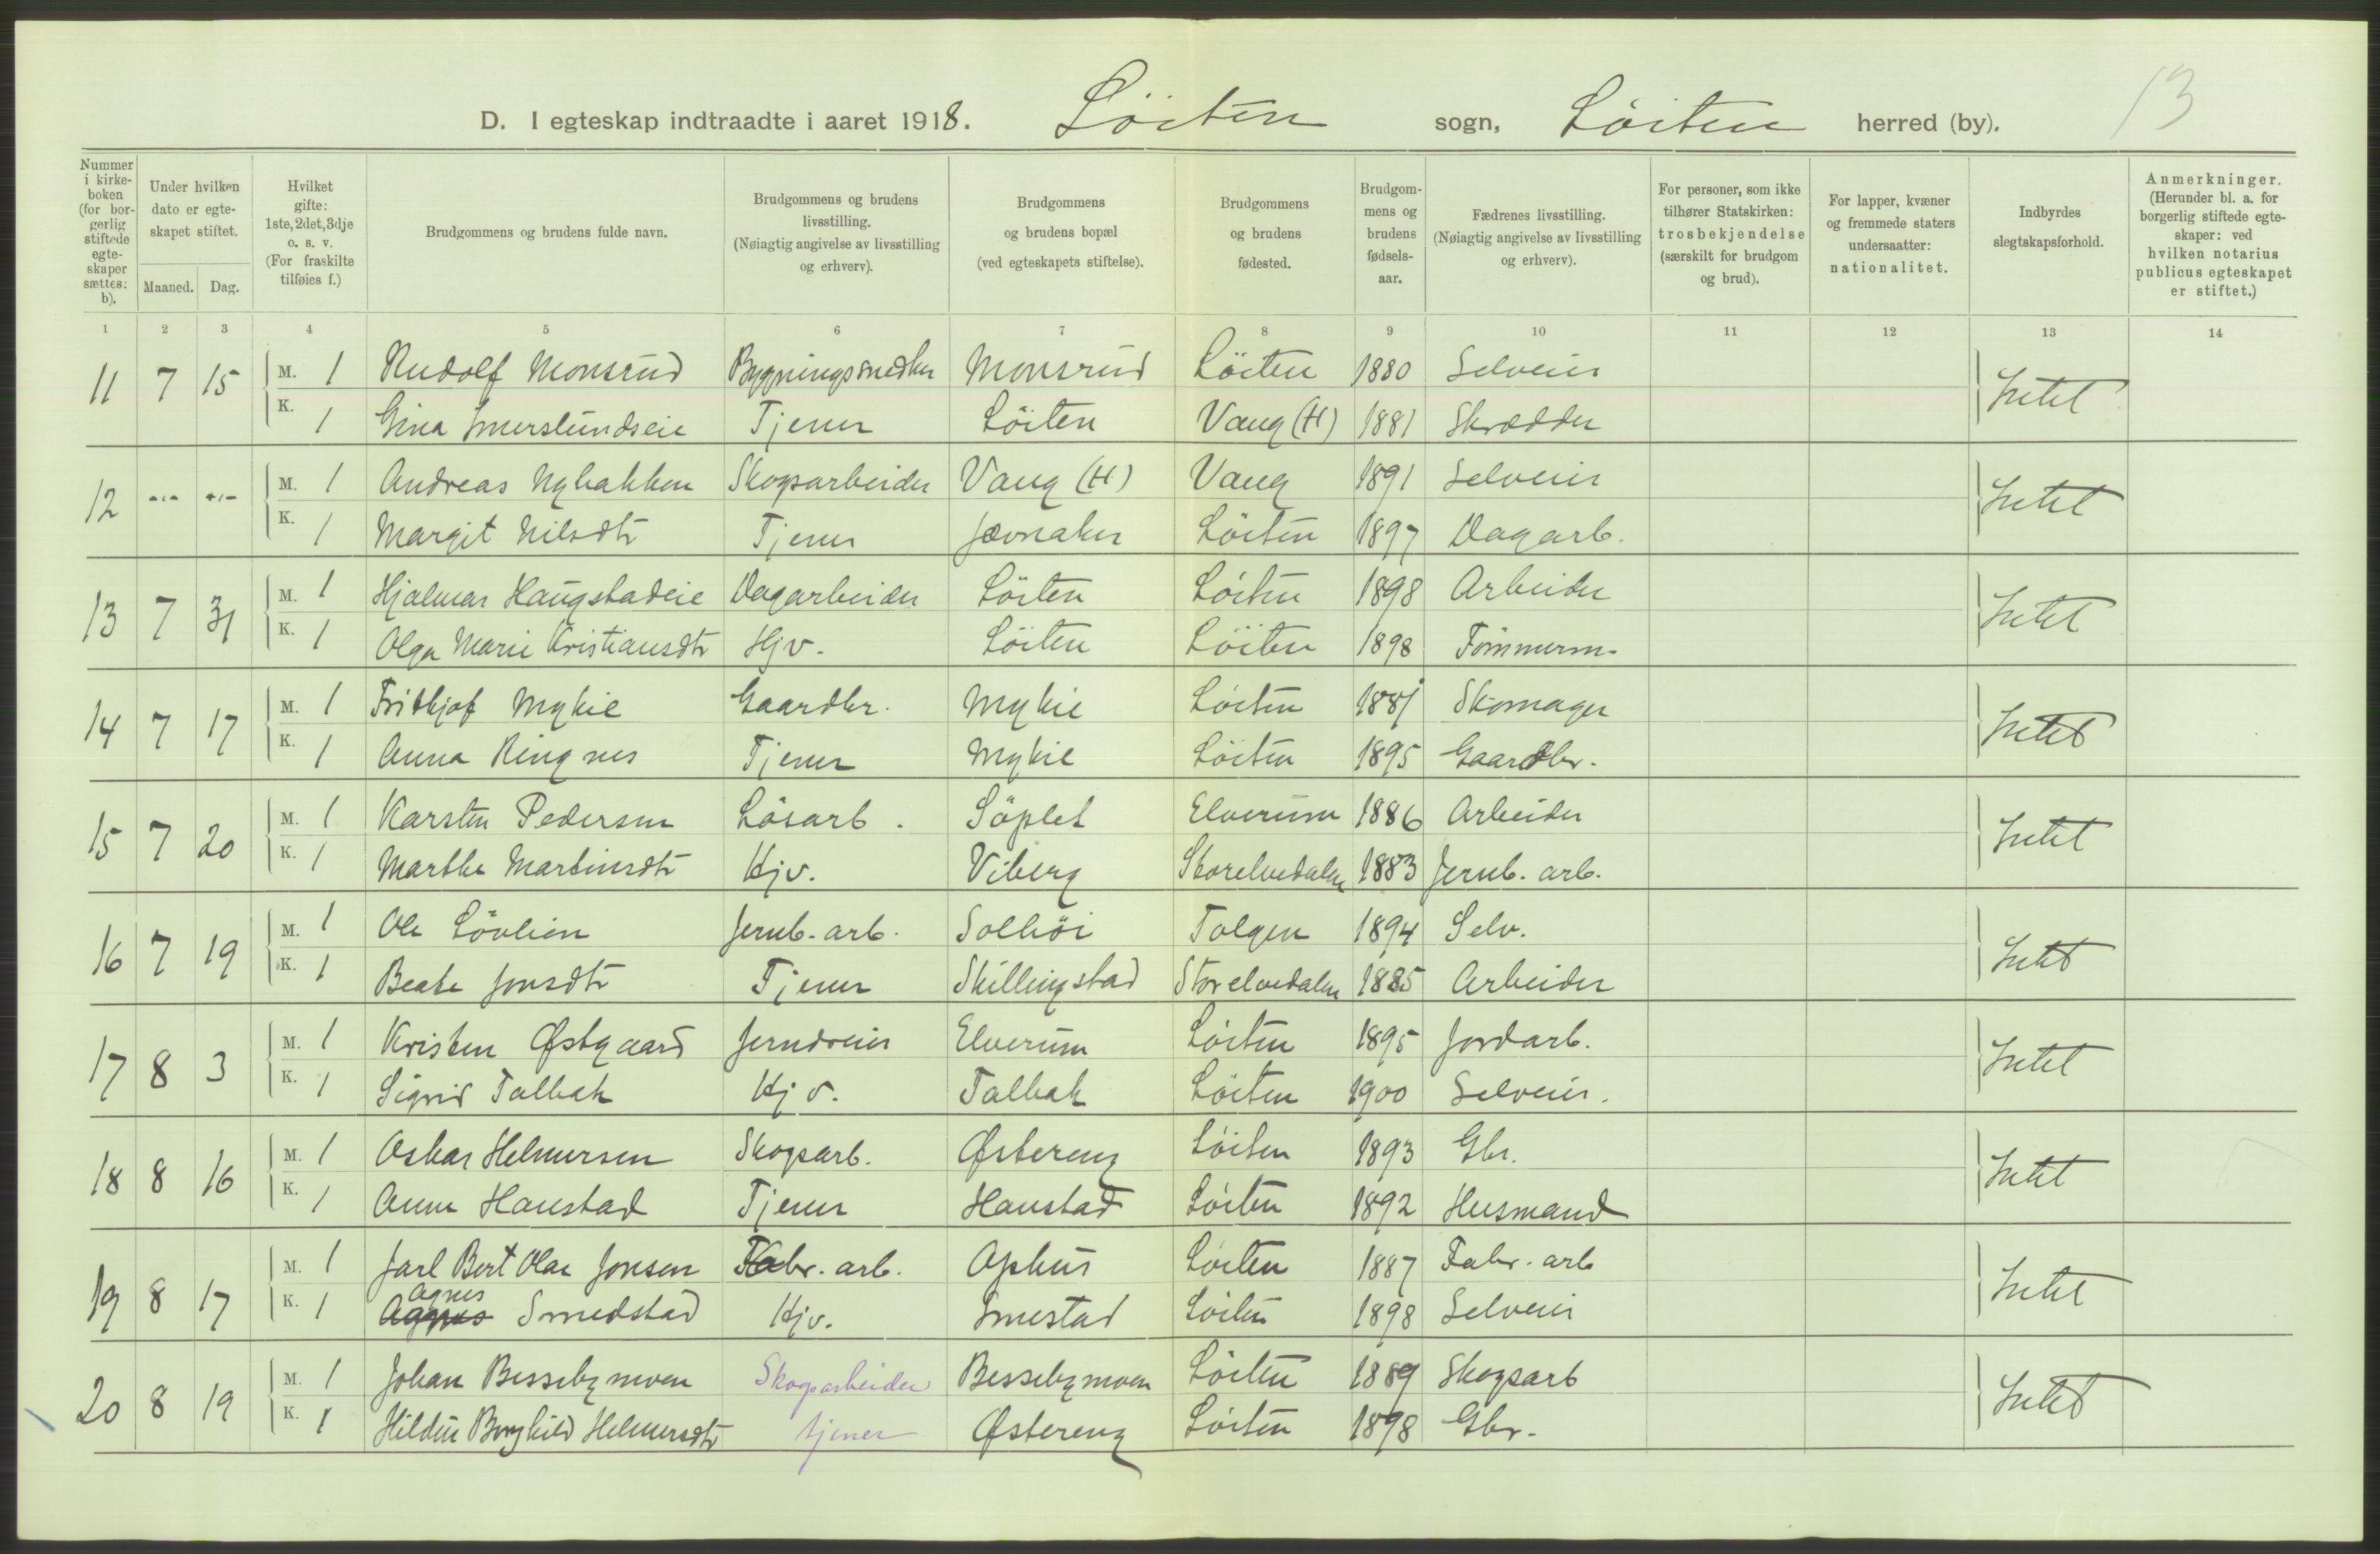 D. I egteskap indtraadte i aaret 1918. Löiten sogn, Löiten herred (by). 13
Nummer i kirkeboken (for borgerlig stiftede egteskaper sættes: b).
Under hvilken dato er egteskapet stiftet.
Maaned. Dag.
Hvilket gifte: 1ste, 2det, 3dje o. s. v. (For fraskilte tilføies f.)
Brudgommens og brudens fulde navn.
Brudgommens og brudens livsstilling. (Nøiagtig angivelse av livsstilling og erhverv).
Brudgommens og brudens bopæl (ved egteskapets stiftelse).
Brudgommens og brudens fødested.
Brudgommens og brudens fødselsaar.
Fædrenes livsstilling. (Nøiagtig angivelse av livsstilling og erhverv).
For personer, som ikke tilhører Statskirken: trosbekjendelse (særskilt for brudgom og brud).
For lapper, kvæner og fremmede staters undersaatter: nationalitet.
Indbyrdes slegtskapsforhold.
Anmerkninger. (Herunder bl. a. for borgerlig stiftede egteskaper: ved hvilken notarius publicus egteskapet er stiftet.)
1 2 3 4 5 6 7 8 9 10 11 12 13 14
11 7 15 M. 1 Rudolf Monsrud Bygningssnedker Monsrud Löiten 1880 Selveier Intet
K. 1 Gina Imerslundseie Tjener Löiten Vang (H) 1881 Skrædder
12 -"- -"- M. 1 Andreas Nybakken Skogsarbeider Vang (H) Vang 1891 Selveier Intet
K. 1 Margit Nilsdtr Tjener Jævnaker Löiten 1897 Dagarb.
13 7 31 M. 1 Hjalmar Haugstadeie Dagarbeider Löiten Löiten 1898 Arbeider Intet
K. 1 Olga Marie Kristiansdtr Hjv. Löiten Löiten 1898 Tömmerm.
14 7 17 M. 1 Frithjof Mykie Gaardbr. Mykie Löiten 1881 Skomager Intet
K. 1 Anna Ringnes Tjener Mykie Löiten 1895 Gaardbr.
15 7 20 M. 1 Karsten Pedersen Lösarb. Söplet Elverum 1886 Arbeider Intet
K. 1 Marthe Martinsdtr Hjv. Viberg Storelvedalen 1883 Jernb. arb.
16 7 19 M. 1 Ole Lövlien Jernb. arb. Solhöi Tolgen 1894 Selv. Intet
K. 1 Beate Jonsdtr Tjener Skillingstad Storelvedalen 1885 Arbeider
17 8 3 M. 1 Kristen Østgaard Jerndreier Elverum Löiten 1895 Jordarb. Intet
K. 1 Sigrid Talbak Hjv. Talbak Löiten 1900 Selveier.
18 8 16 M. 1 Oskar Helmersen Skogsarb. Østereng Löiten 1893 Gbr. Intet
K. 1 Anne Hanstad Tjener Hanstad Löiten 1892 Husmand
19 8 17 M. 1 Jarl Bert Olav Jonsen Fabr. arb. Ophus Löiten 1887 Fabr. arb Intet
Agnes
K. 1 Smedstad Hjv. Smestad Löiten 1898 Selveier
20 8 19 M. 1 Johan Bessebymoen Skogsarbeider Bessebymoen Löiten 1889 Skogsarb Intet
K. 1 Hildur Borghild Helmersdtr tjener Østereng Löiten 1898 Gbr.